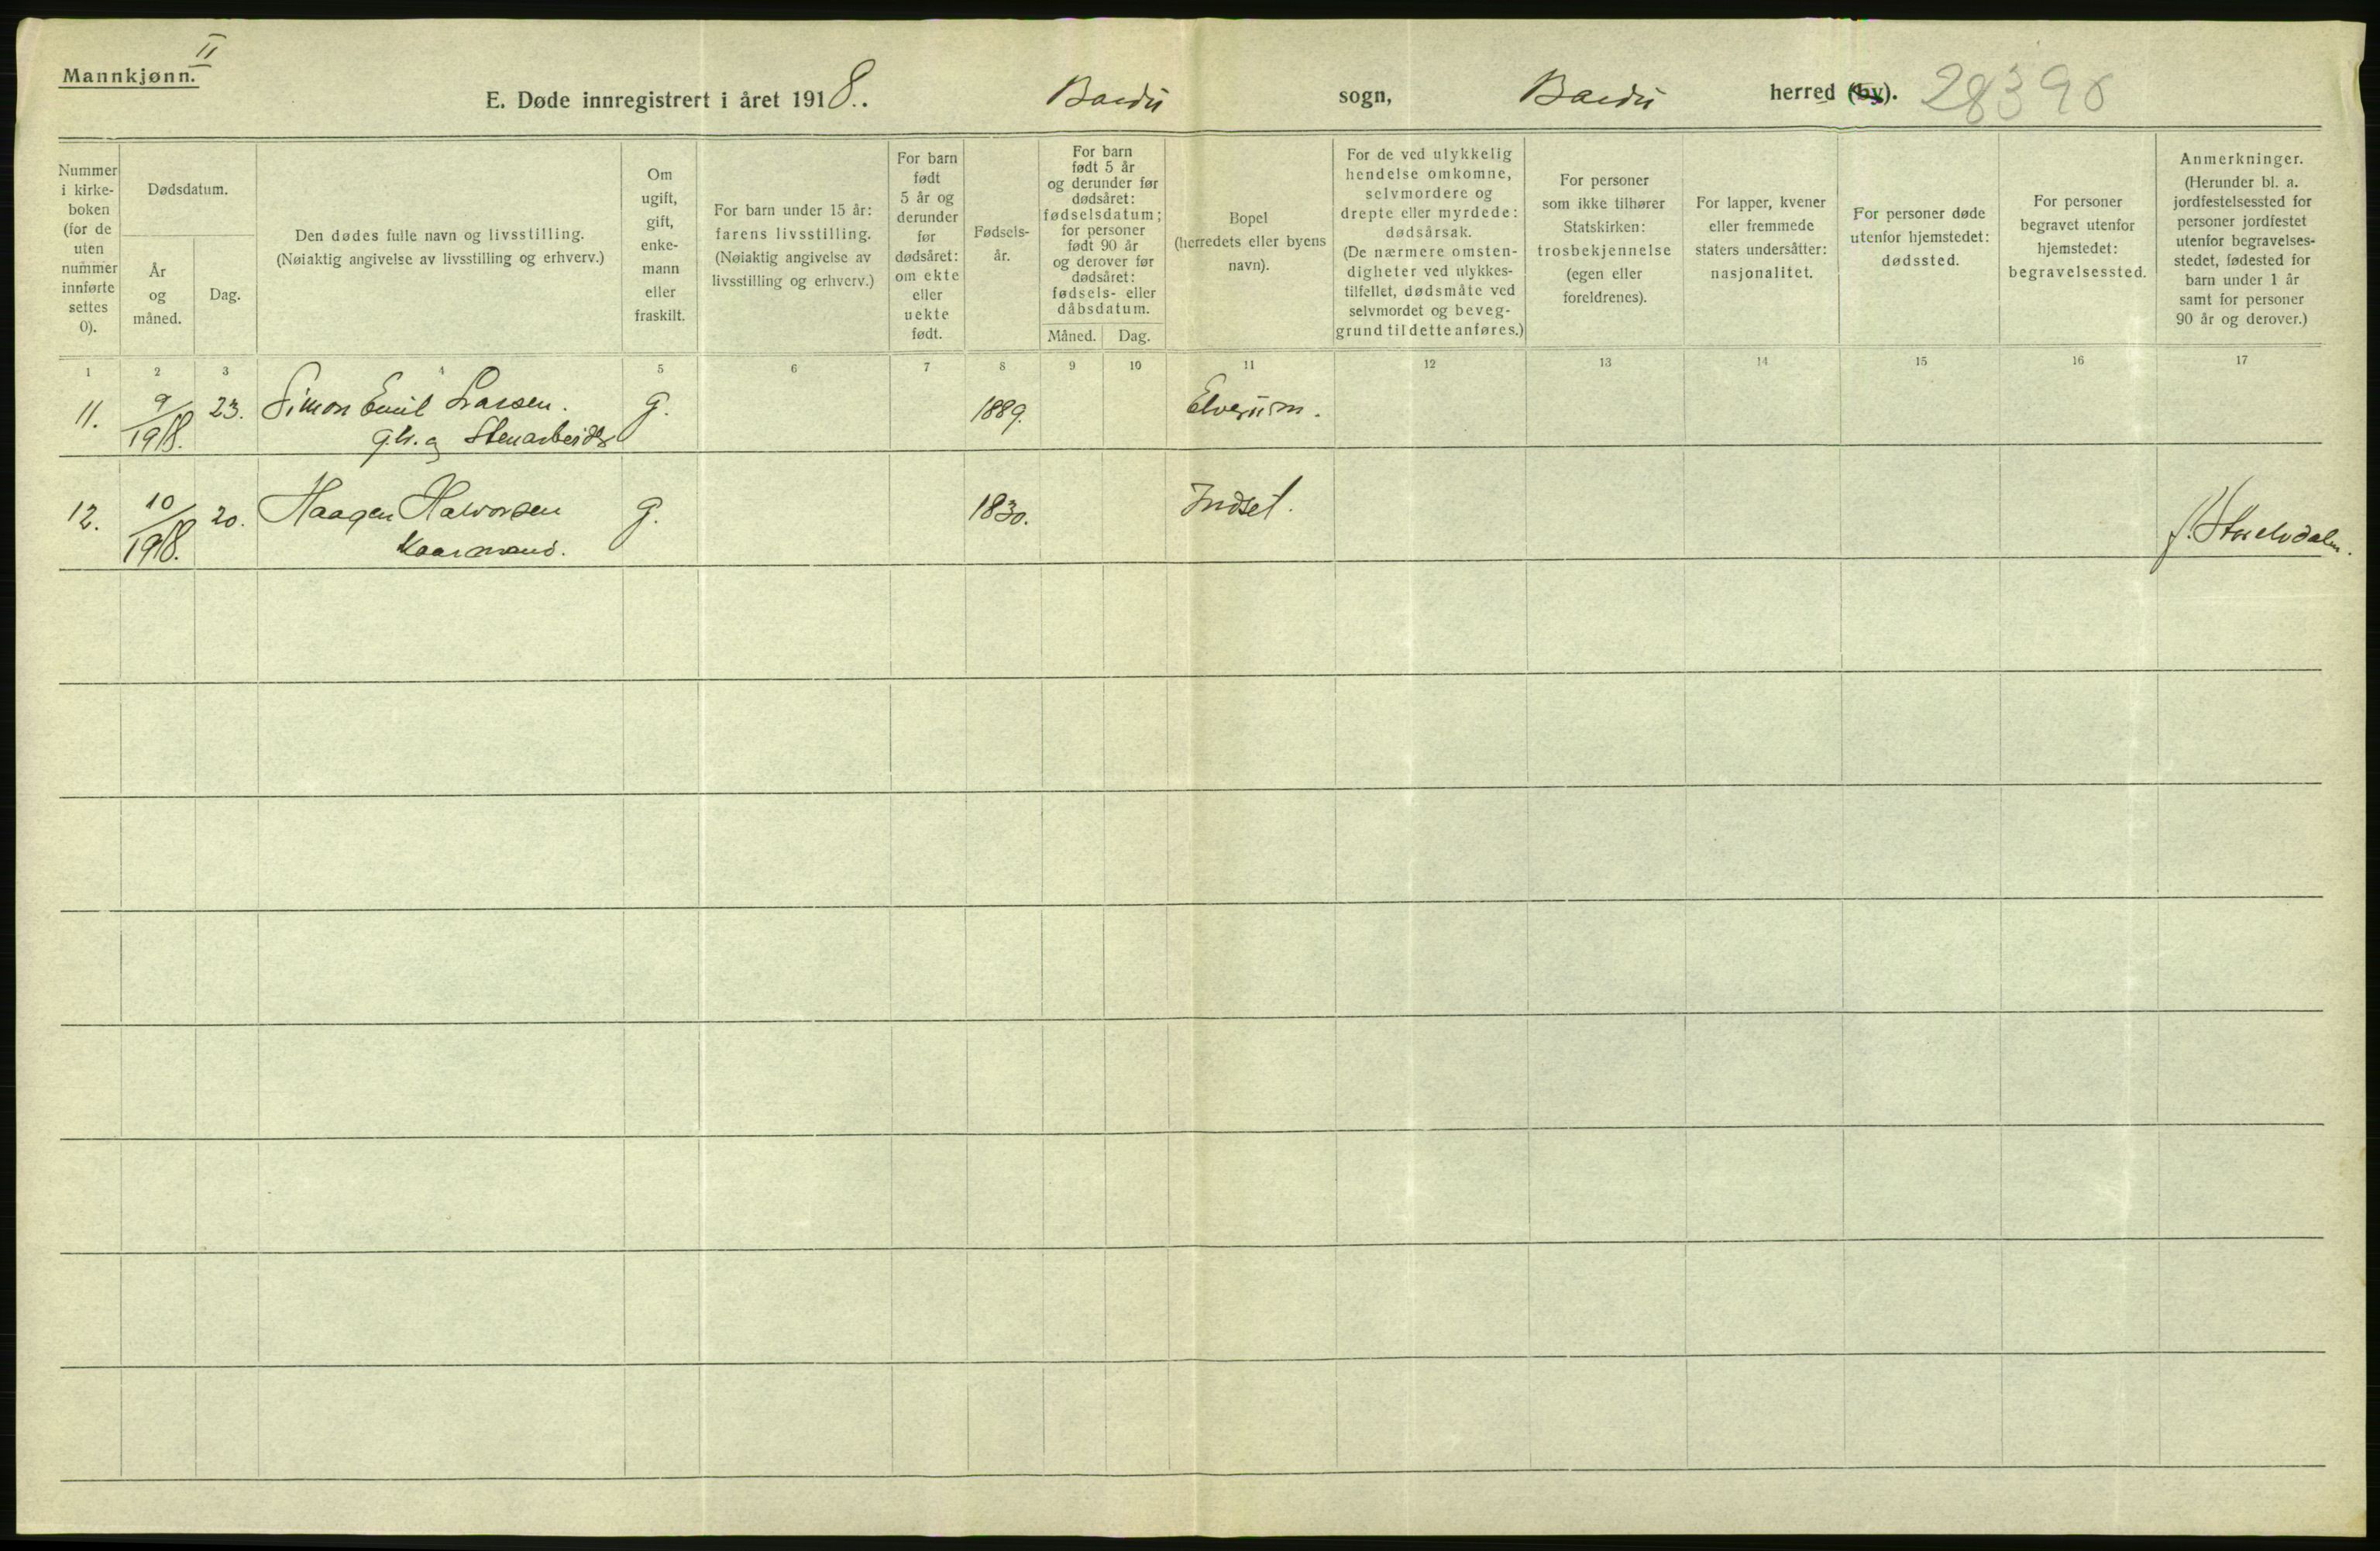 Mannkjønn. II
E. Døde innregistrert i året 1918.. Bardu sogn, Bardu herred (by). 28396
Nummer i kirke- boken (for de uten nummer innførte settes 0).
Dødsdatum.
År og måned.
Dag.
Den dødes fulle navn og livsstilling.
(Nøiaktig angivelse av livsstilling og erhverv.)
Om ugift, gift, enke- mann eller fraskilt.
For barn under 15 år: farens livsstilling. (Nøiaktig angivelse av livsstilling og erhverv.)
For barn født 5 år og derunder før dødsåret: om ekte eller uekte født.
Fødsels- år.
For barn født 5 år og derunder før dødsåret: fødselsdatum; for personer født 90 år og derover før dødsåret: fødsels- eller dåbsdatum.
Måned. Dag.
Bopel (herredets eller byens navn).
For de ved ulykkelig hendelse omkomne, selvmordere og drepte eller myrdede: dødsårsak. (De nærmere omsten- digheter ved ulykkes- tilfellet, dødsmåte ved selvmordet og beveg- grund til dette anføres.)
For personer som ikke tilhører Statskirken: trosbekjennelse (egen eller foreldrenes).
For lapper, kvener eller fremmede staters undersåtter: nasjonalitet.
For personer døde utenfor hjemstedet: dødssted.
For personer begravet utenfor hjemstedet: begravelsessted.
Anmerkninger. (Herunder bl. a. jordfestelsessted for personer jordfestet utenfor begravelses- stedet, fødested for barn under 1 år samt for personer 90 år og derover.)
1 2 3 4 5 6 7 8 9 10 11 12 13 14 15 16 17
11. 9/1918. 23. Simon Emil Larsen. g. 1889. Elverum.
gbr. og Stenarbeider
12. 10/1918. 20. Haagen Halvorsen g. 1830. Indset. f. Storelvdalen.
Kaarmand.